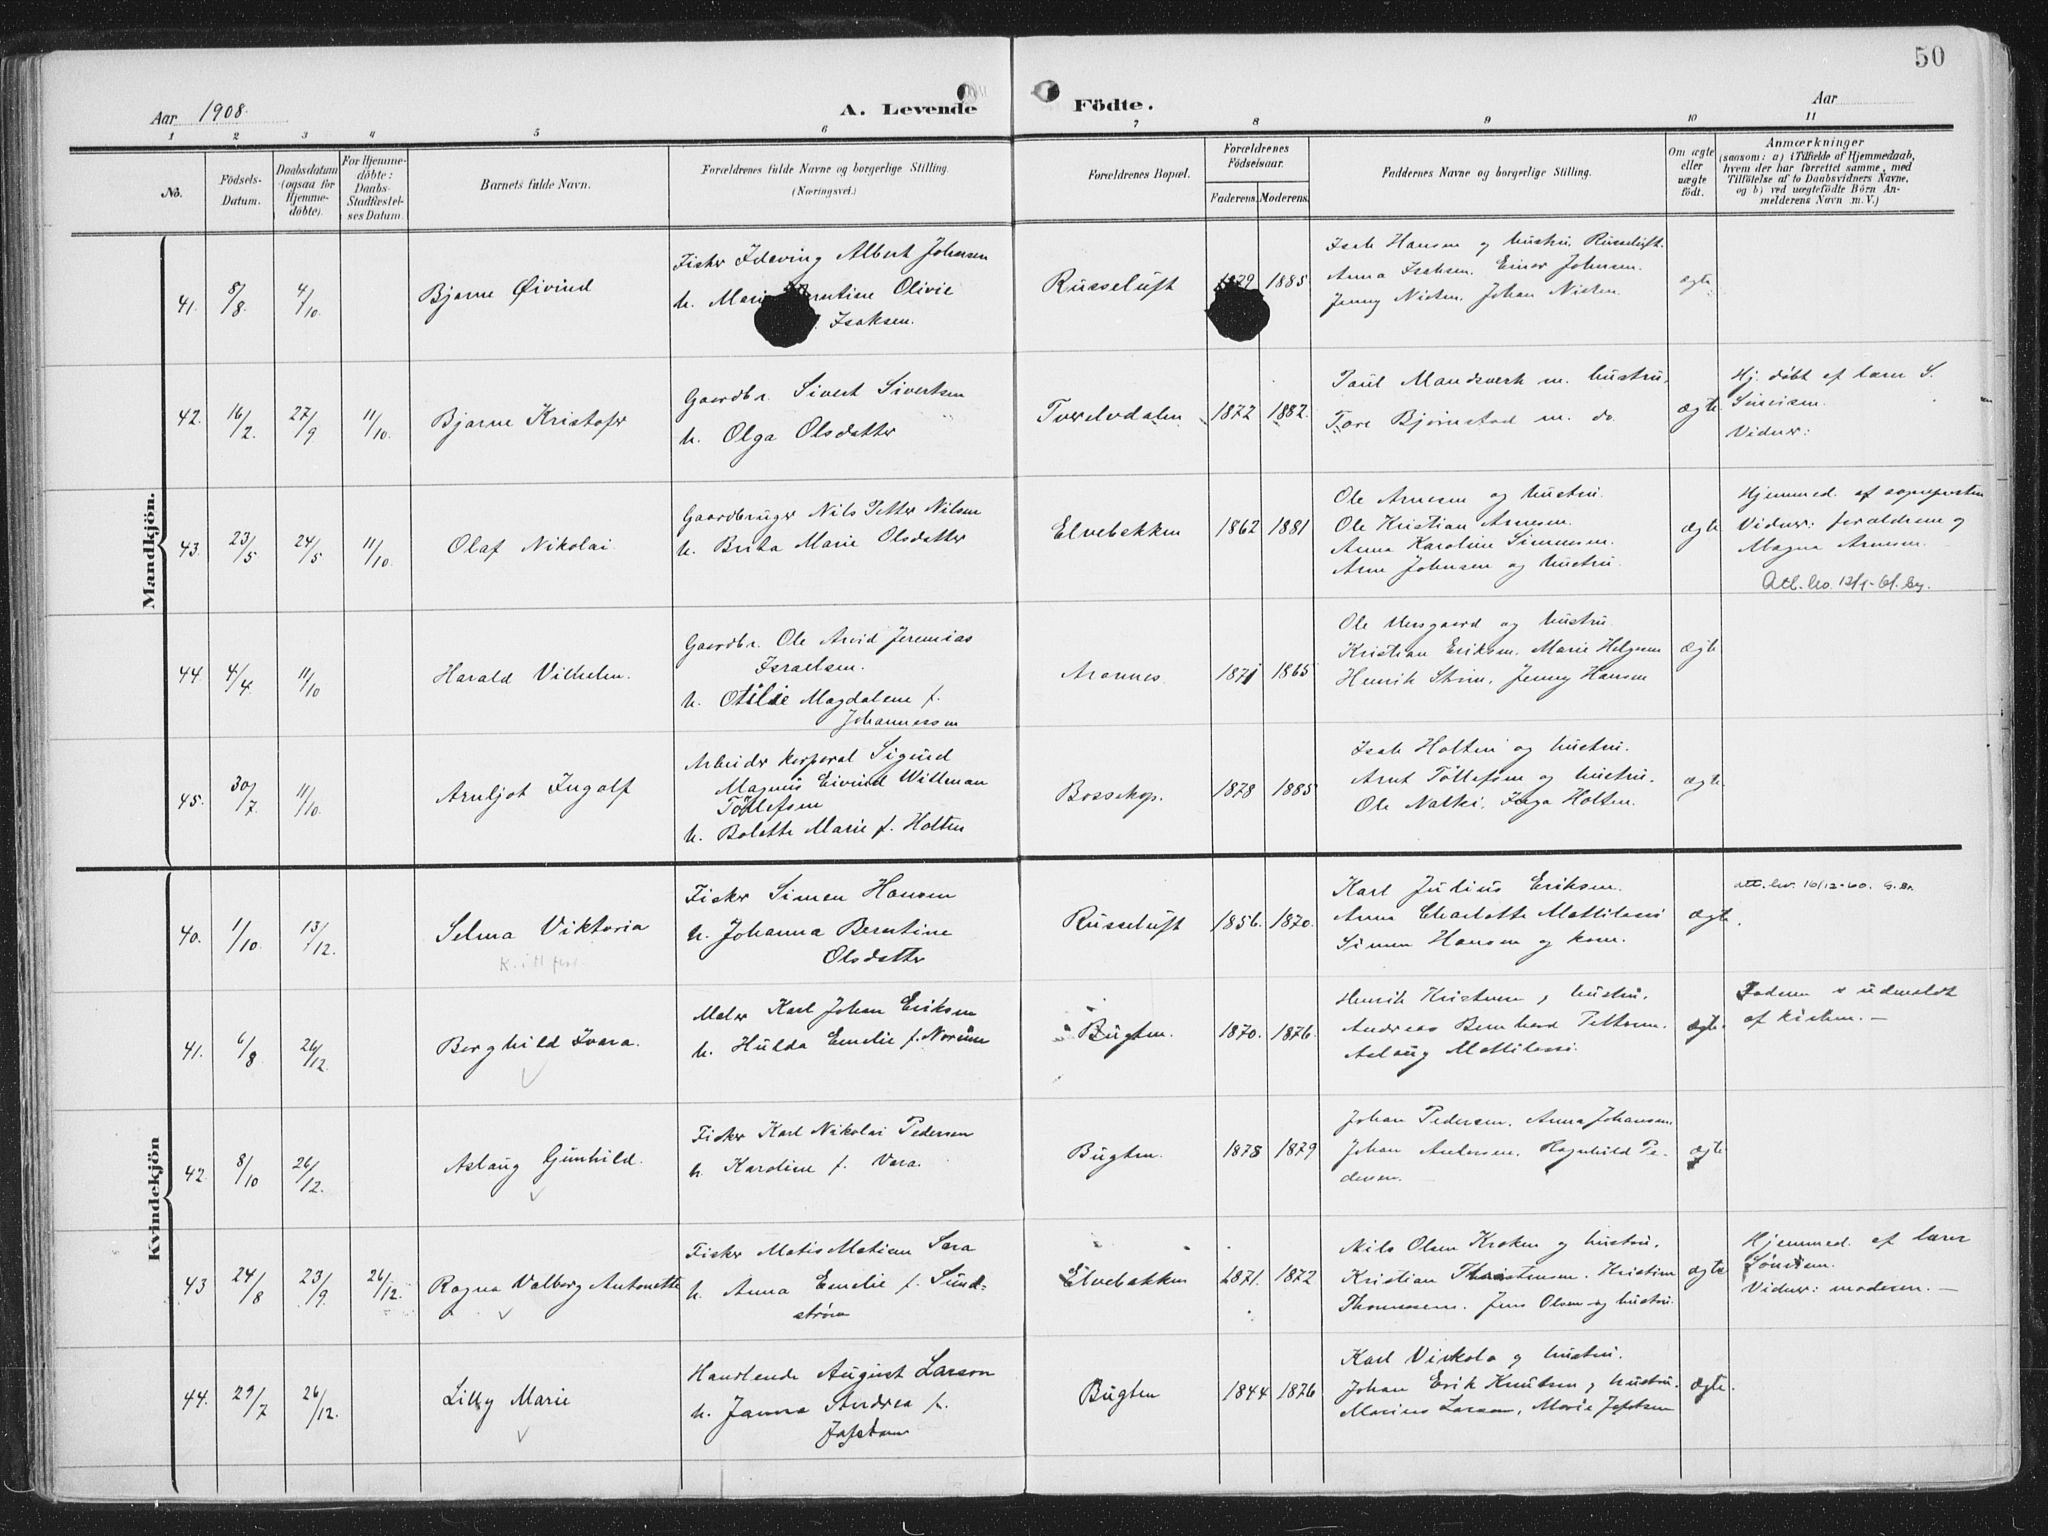 50
Aar 1908.
A. Levende Födte.
Aar
1 2 3 4 5 6 7 8 9 10 11
No.
Födsels-Datum.
Daabsdatum (ogsaa for Hjemme-döbte).
For Hjemme-döbte: Daabs-Stadfæstel-ses Datum.
Barnets fulde Navn.
Forældrenes fulde Navne og borgerlige Stilling.
(Næringsvei.)
Forældrenes Bopæl.
Forældrenes Födselsaar.
Faderens. Moderens.
Faddernes Navne og borgerlige Stilling.
Om ægte eller uægte födt.
Anmærkninger
(saasom: a) i Tilfælde af Hjemmedaab,
hvem der har forrettet samme, med
Tilföielse af to Daabsvidners Navne,
og b) ved uægtefödte Börn An-
melderens Navn m. V.)
Mandkjön.
41. 8/8 4/10 Bjarne Øivind
Fisker Albert Johnsen
h. Olivie
Isaksen.
Russeluft 1885
Isak Hansen og hustru, Russeluft.
Anna Isaksen. Einar Johnsen.
Jenny Nielsen. Johan Nielsen.
ægte
42. 16/2. 27/9 11/10. Bjarne Kristofer
Gaardbr. Sivert Sivertsen
h. Olga Olsdatter
Tverelvdalen 1872 1882.
Paul Mandsverk m. hustru.
Tore Bjørnstad m. do.
ægte
Hj. døbt af lærer S.
Simisen.
Vidner:
43. 23/5 24/5 11/10. Olaf Nikolai.
Gaardbruger Nils Petter Nilsen
h. Brita Marie Olsdatter
Elvebakken 1862 1881
Ole Arnesen og hustru.
Ole Kristian Arnesen.
Anna Karoline Simonsen.
Arne Johnsen og hustru.
ægte
Hjemmed. af sognepresten
Vidner: forældrene og
Magna Arnesen.
Att. lev.
44. 4/4. 11/10 Harald Vilhelm.
Gaardbr. Ole Arvid Jeremias
Israelsen.
h. Otilie Magdalene f.
Johannessen
Aronnes. 1871 1865
Ole og hustru.
Kristian Eriksen. Marie Helgesen
Henrik Strim, Jenny Hansen
ægte
45. 30/7 11/10. Arnljot Ingolf
Arbeider korporal Sigurd
Magnus Eivind Willman
Töllefsen
h. Bolette Marie f. Holten
Bossekop. 1878 1885
Isak Holten og hustru.
Arnt Töllefsen og hustru.
Ole Inga Holten.
ægte
Kvindekjön
40. 1/10. 13/12. Selma Viktoria
Fisker Simen Hansen
h. Johanna Berntine
Olsdatter
Russeluft 1856. 1870.
Karl Julius Eriksen.
Anna Charlotte Mattilassi
Simen Hansen og kone.
ægte.
att. lev. 16/12-60.
41. 6/8. 26/12. Borghild Ivara.
Maler Karl Johan Eriksen
h. Hulda Emelie f. Norum
Bugten. 1870. 1876.
Henrik Kristensen og hustru.
Andreas Bernhard Pettersen.
Aslaug Mattilassi.
ægte
Faderen er udmeldt
af kirken. —
42. 8/10 26/12. Aslaug Gunhild.
Fisker Karl Nikolai Pedersen
h. Karoline f. Vara.
Bugten. 1878 1879
Johan Pedersen. Anna Johansen.
Johan Andersen. Ragnhild Pe-
dersen.
ægte
43 24/8 23/9. 26/12. Ragna Valborg Antonette
Fisker Matis Matisen Sara
h. Anna Emelie f. Sund-
ström
Elvebakken 1871. 1872
Nils Olsen Kroken og hustru.
Kristian Thorstensen. Kristine
Thomassen. Jens Olsen og hustru.
ægte
Hjemmed. af lærer
Simisen.
Vidner: moderen. —
44. 29/7 26/12. Lilly Marie
Handlende August Larson
h. Janna Andrea f.
Bugten 1844 1876
Karl Viskola og hustru.
Johan Erik Knutsen og hustru.
Marius Larson, Marie
ægte